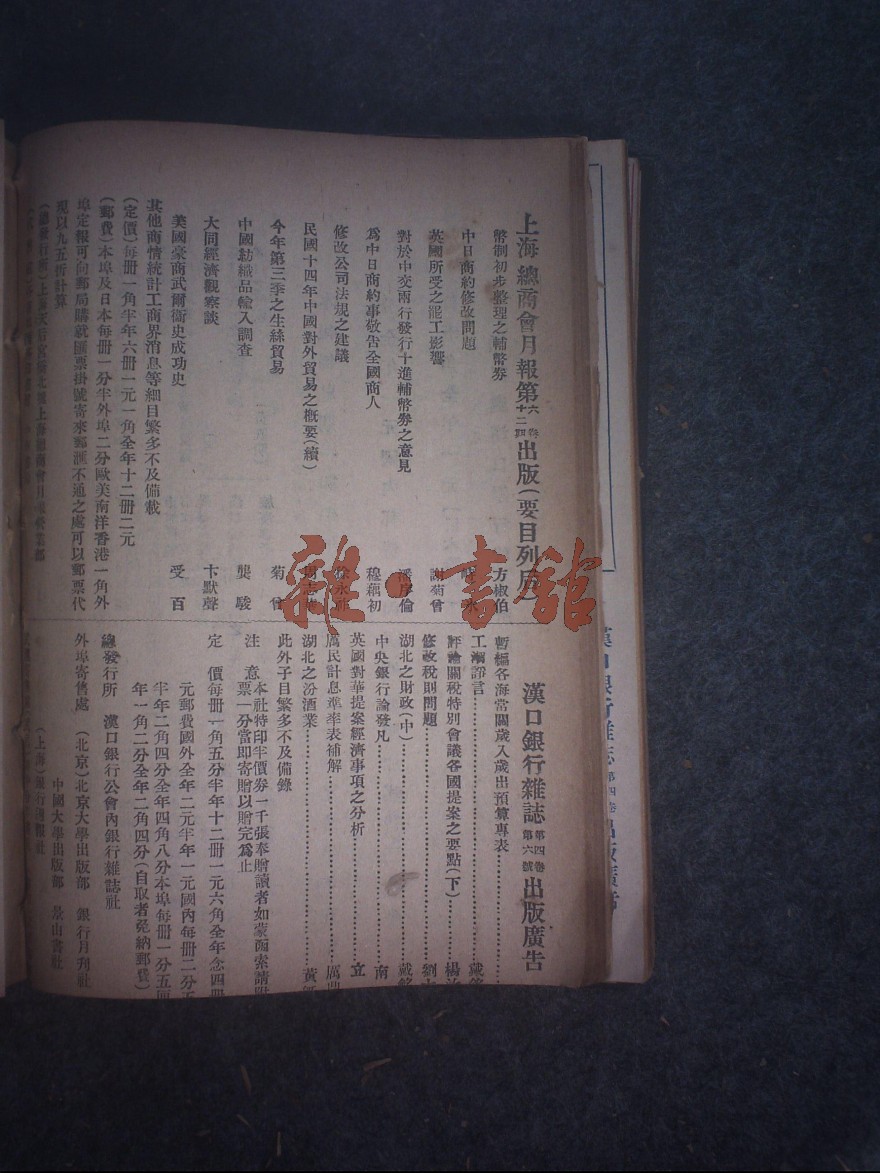 上海總商會月報第六卷十二號出版(要目列后)
幣制初步整理之輔幣券 方椒伯
中日商約修改問題
英國所受之罷工影響 謝菊曾
對於中交兩行發行十進輔幣券之意見 潘序倫
為中日商約事敬告全國商人 穆藕初
修改公司法規之建議 徐永祚
民國十四年中國對外貿易之概要(續)
今年第三季之生絲貿易 菊曾
中國紡織品輸入調查 龔駿
大同經濟觀察談 卞默聲
美國豪商武爾衛史成功史 受百
其他商情統計工商界消息等細目繁多不及備載
(定價)每冊一角半年六冊一元一角全年十二冊二元
(郵費)本埠及日本每冊一分半外埠二分歐美南洋香港一角外
埠定報可向郵局購就匯票掛號寄來郵滙不通之處可以郵票代
現以九五折計算
漢口銀行雜誌第四卷第六號出版廣告
暫編各海常關歲入歲出預算專表
工潮諍言
評論關稅特別會議各國提案之要點(下)
修改稅則問題
湖北之財政(中)
中央銀行論發凡
英國對華提案經濟事項之分析
厲民計息準率表補解
湖北之汾酒業
此外子目繁多不及備錄
注意本社特印半價券一千張奉贈讀者如蒙函索請附
票一分當即寄贈以贈完為止
定價每冊一角五分半年十二冊一元六角全年念四冊
元郵費國外全年二元半年一元國內每冊二分
半年二角四分全年四角八分本埠每冊一分五厘
年一角二分全年二角四分(自取者免納郵費)
總發行所 漢口銀行公會內銀行雜誌社
外埠寄售處 (北京)北京大學出版部 銀行月刊社
中國大學出版部 景山書社
(上海)銀行週報社
雜·書館